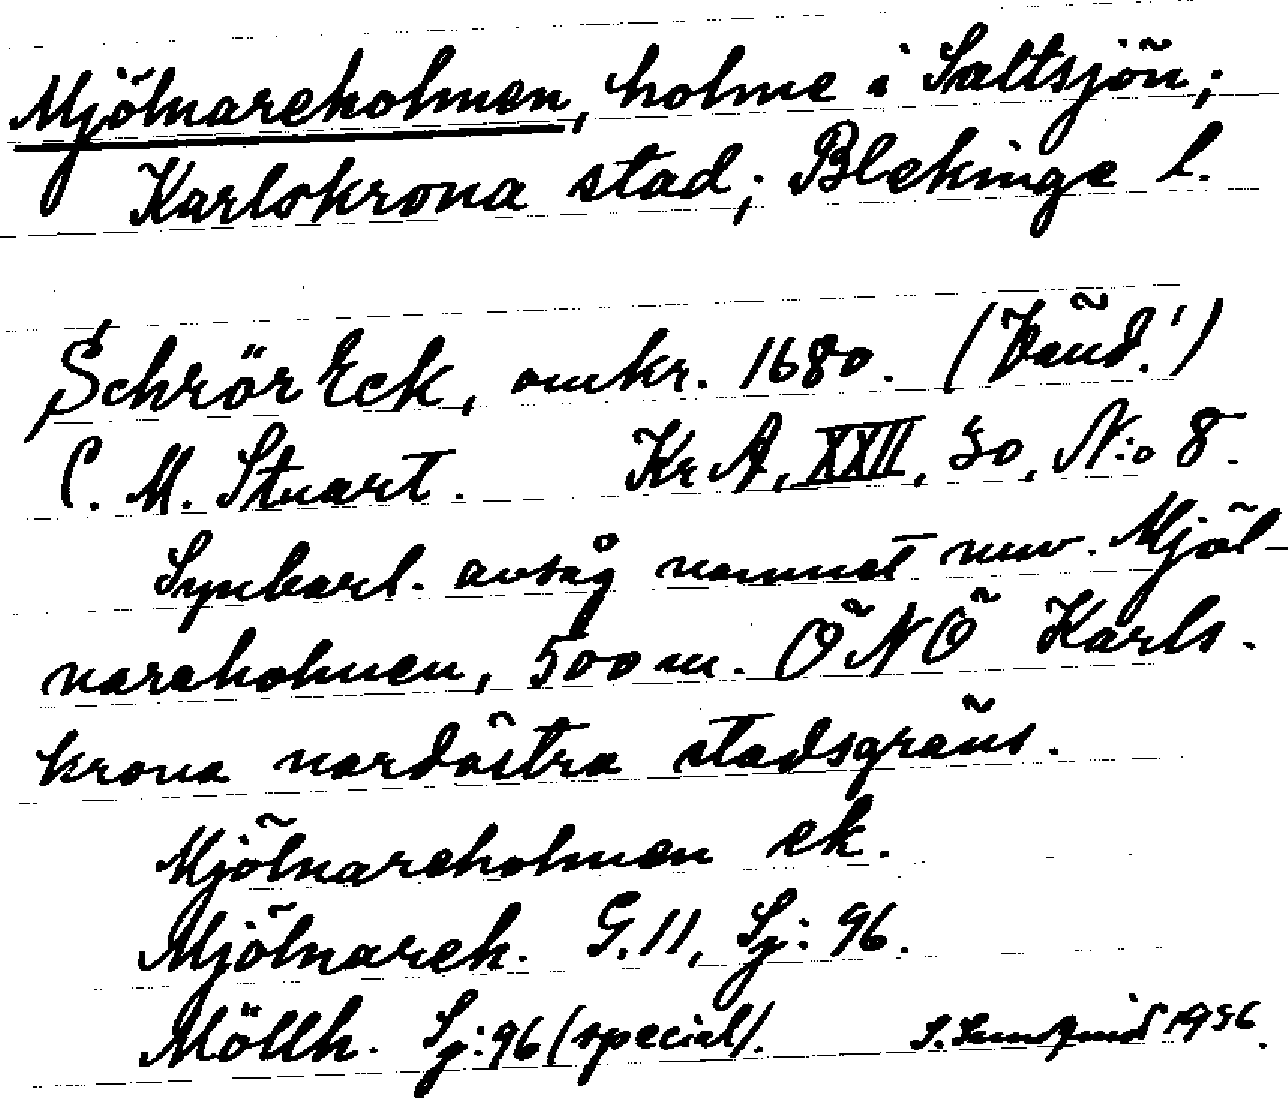 Mjölnareholmen, holme i Saltsjön;
Karlskrona stad; Blekinge l.
Schrör Eck, omkr. 1680. (Vänd!)
C. M. Stuart. Kr A, XXII, 30, N:o 8.
Synbarl. avsåg namnet nuv. Mjöl-
nareholmen, 500 m. ÖNÖ Karls-
krona nordöstra stadsgräns.
Mjölnareholmen ek.
Mjölnareh. G. 11, Sj: 96.
Möllh. Sj: 96 (special).
1956.